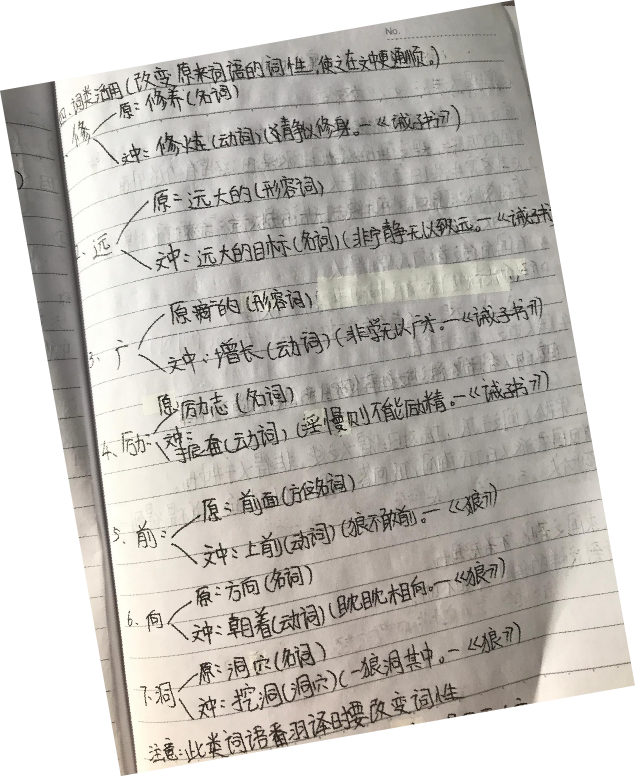 No.
四、词类活用(改变原来词语的词性,使之在文中更通顺。)
原:修养(名词)
1.修
文中:修炼(动词)(静以修身。—《诫子书》)
原:远大的(形容词)
2.远
文中:远大的目标(名词)(非宁静无以致远。—《诫子书
原:新的(形容词)
3.广
文中:增长(动词)(非学无以广才。—《诫子书》)
原:励志(名词)
4.励:
文中:振奋(动词)(淫慢则不能励精。—《诫子书》)
原:前面(方位名词)
5.前:
文中:上前(动词)(狼不敢前。—《狼》)
原:方向(名词)
6.向
文中:朝着(动词)(眈眈相向。—《狼》)
原:洞穴(名词)
7.洞
文中:挖洞(洞穴)(一狼洞其中。—《狼》)
注意:此类词语番羽译时要改变词性